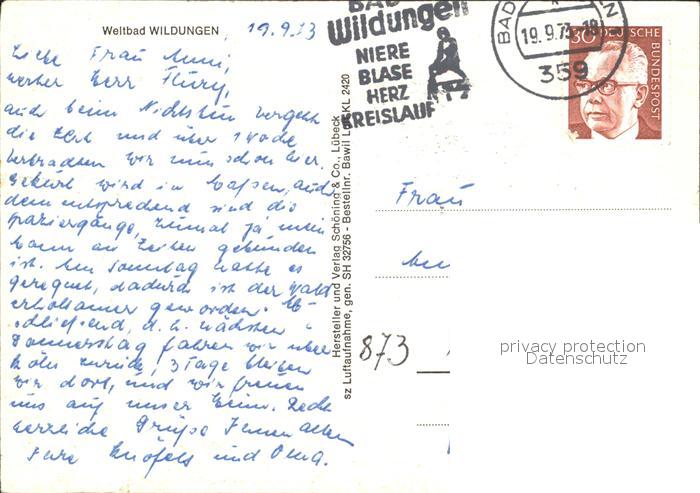 Weltbad WILDUNGEN, 19.9.73
Liebe Frau Anni,
werter Herr Flury,
auch beim Nichtstun vergeht
die Zeit und über 1 Woche
verbrachten wir nun schon hier.
Gekurt wird in Maßen, auch
dementsprechend sind die
Spaziergänge, zumal ja mein
Mann an Zeiten gebunden
ist. Am Sonntag hatte es
geregnet, dadurch ist der Wald
erholsamer geworden.
d.h. nächsten
Donnerstag fahren wir über
Köln zurück, 3 Tage bleiben
wir dort, und wir freuen
uns auf unser Heim. Recht
herzliche Grüße Ihnen allen
Ihre Knöfels und Oma.
Hersteller und Verlag Schöning & Co., Lübeck
sz Luftaufnahme, gen. SH 32756 - Bestellnr. Bawil Lu KL 2420
BAD
Wildungen
NIERE
BLASE
HERZ
KREISLAUF
BAD
19.9.73-18
359
30 DEUTSCHE
BUNDESPOST
Frau
873
privacy protection
Datenschutz